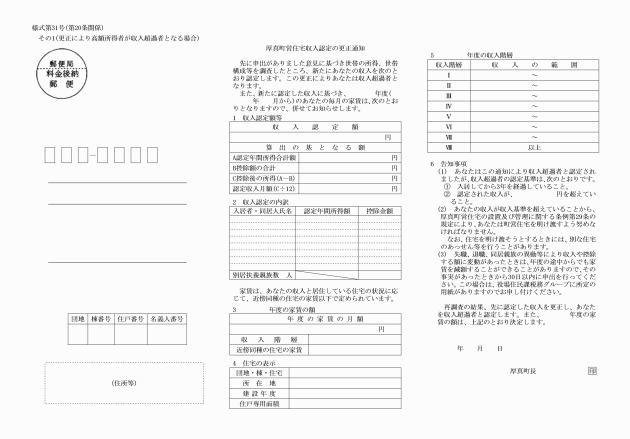 様式第31号(第20条関係)
その1(更正により高額所得者が収入超過者となる場合)
郵便局
料金後納
郵便
団地 棟番号 住戸番号 名義人番号
(住所等)
厚真町営住宅収入認定の更正通知
先に申出がありました意見に基づき世帯の所得、世帯
構成等を調査したところ、新たにあなたの収入を次のと
おり認定します。この更正によりあなたは収入超過者と
なります。
また、新たに認定した収入に基づき、 年度(
年 月から)のあなたの毎月の家賃は、次のとお
りとなりますので、併せてお知らせします。
1 収入認定額等
収入認定額
円
算出の基となる額
A認定年間所得合計額 円
B控除額の合計 円
C控除後の所得(A-B) 円
認定収入月額(C÷12) 円
2 収入認定の内訳
入居者・同居人氏名 認定年間所得額 控除金額
別居扶養親族数 人
家賃は、あなたの収入と居住している住宅の状況に応
じて、近傍同種の住宅の家賃以下で定められています。
3 年度の家賃の額
年度の家賃の月額
円
収入階層
近傍同種の住宅の家賃
4 住宅の表示
団地・棟・住宅
所在地
建設年度
住戸専用面積
5 年度の収入階層
収入階層 収入の範囲
Ⅰ ~
Ⅱ ~
Ⅲ ~
Ⅳ ~
Ⅴ ~
Ⅵ ~
Ⅶ ~
Ⅷ 以上
6 告知事項
(1) あなたはこの通知により収入超過者と認定され
ましたが、収入超過者の認定基準は、次のとおりです。
① 入居してから3年を経過していること。
② 認定された収入が、 円を超えてい
ること。
(2) あなたの収入が収入基準を超えていることから、
厚真町営住宅の設置及び管理に関する条例第29条の
規定により、あなたは町営住宅を明け渡すよう努めな
ければなりません。
なお、住宅を明け渡そうとするときには、別な住宅
のあっせん等を行うことがあります。
(3) 失職、退職、同居親族の異動等により収入や控除
する額に変動があったときは、年度の途中からでも家
賃を減額することができることがありますので、その
事実があったときから30日以内に申出を行ってくだ
さい。この場合は、役場住民課税務グループに所定の
用紙がありますのでお申し付けください。
再調査の結果、先に認定した収入を更正し、あなた
を収入超過者と認定します。また、 年度の家
賃の額は、上記のとおり決定します。
年 月 日
厚真町長 印